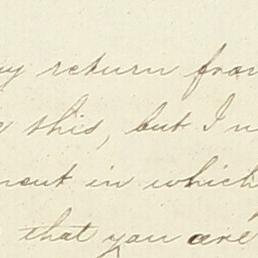 return from
this, but I
in which
that you are